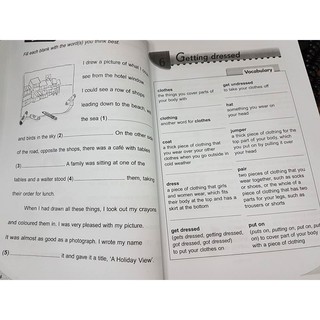 Fill each blank with the word(s) you think best.
I drew a picture of what I
see from the hotel window.
I could see a row of shops
leading down to the beach, wi
the sea (1)
and birds in the sky (2) On the other side
of the road, opposite the shops, there was a café with tables
(3) A family was sitting at one of the
tables and a waiter stood (4) them, taking
their order for lunch.
When I had drawn all these things, I took out my crayons
and coloured them in. I was very pleased with my picture.
It was almost as good as a photograph. I wrote my name
(5) it and gave it a title, 'A Holiday View'.
6 Getting dressed
Vocabulary
clothes
the things you cover parts of
your body with
clothing
another word for clothes
coat
a thick piece of clothing that
you wear over your other
clothes when you go outside in
cold weather
dress
a piece of clothing that girls
and women wear, which fits
their body at the top and has a
skirt at the bottom
get dressed
(gets dressed, getting dressed,
got dressed, got dressed)
to put your clothes on
get undressed
to take your clothes off
hat
something you wear on
your head
jumper
a thick piece of clothing for the
top part of your body, which
you put on by pulling it over
your head
pair
two pieces of clothing that you
wear together, such as socks
or shoes, or the whole of a
piece of clothing that has two
parts for your legs, such as
trousers or shorts
put on
(puts on, putting on, put on, put
on) to cover part of your body
with a piece of clothing